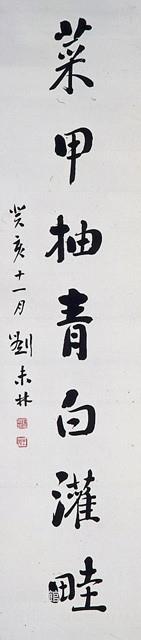 菜甲抽青白灌畦
癸亥十一月 劉未林